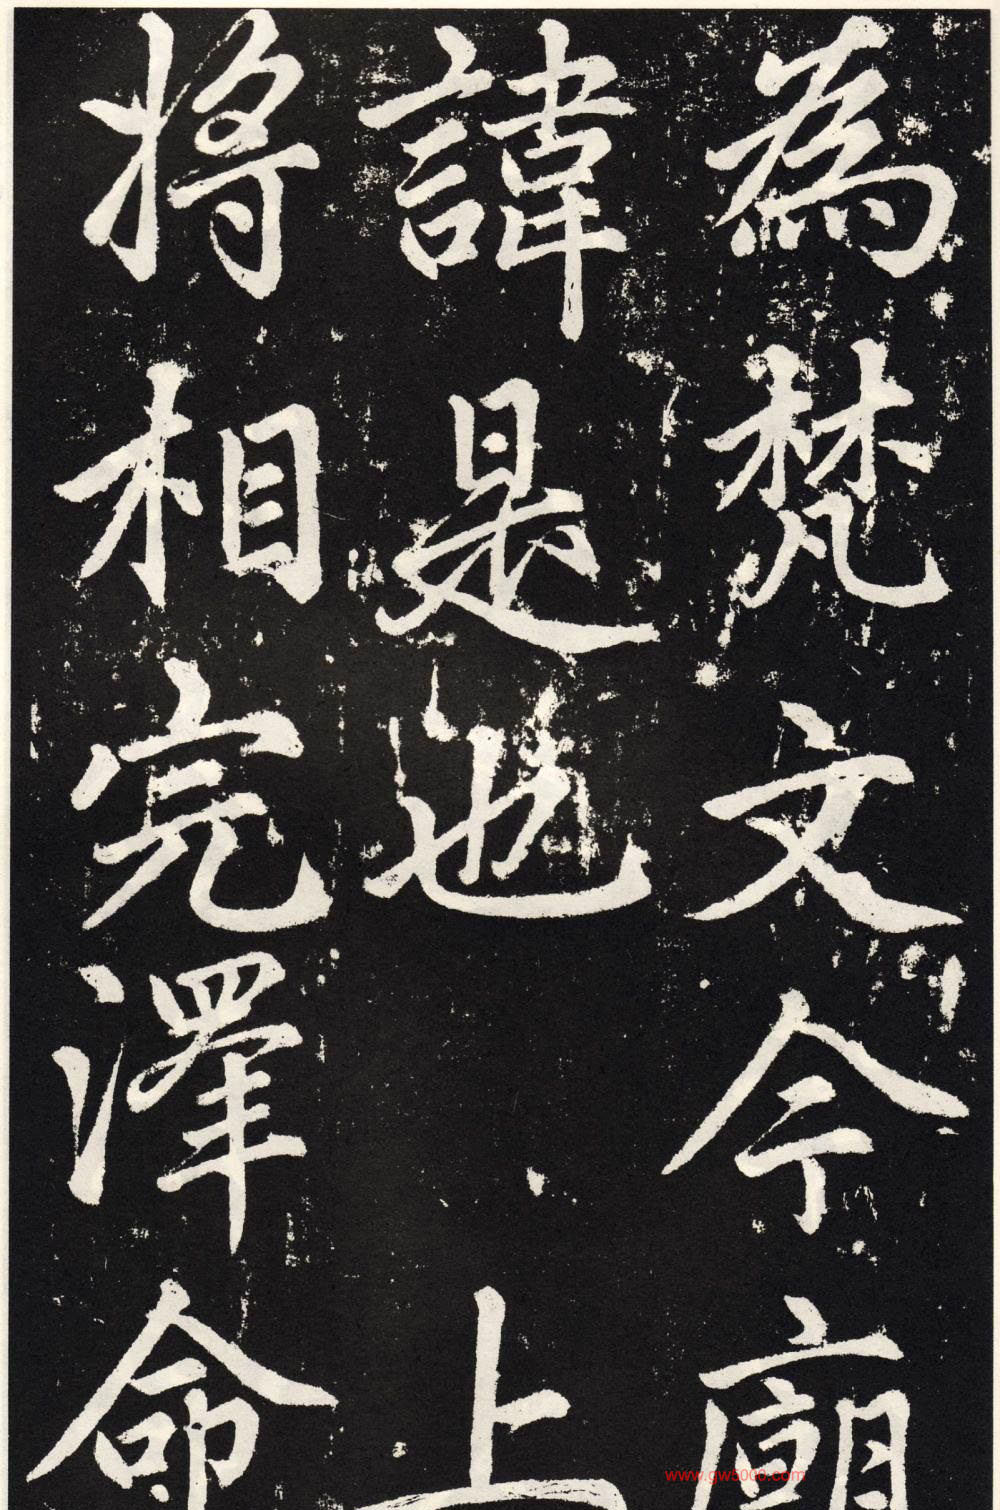 為梵文今廟
諱是也上
將相完澤命
www.gw5000.com